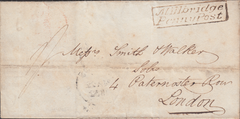 Millbridge
Penny Post
Messrs Smith & Walker
Soho
4 Paternoster Row
London